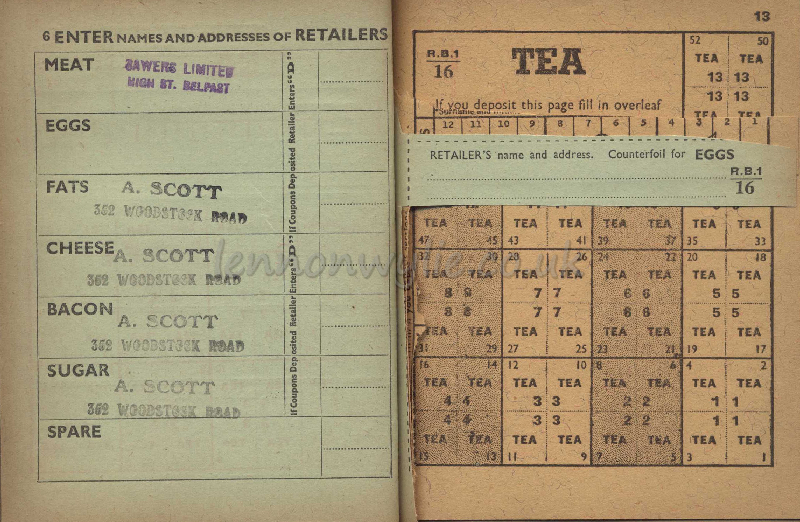 6 ENTER NAMES AND ADDRESSES OF RETAILERS
MEAT
SAWERS LIMITED
HIGH ST. BELFAST
EGGS
FATS
A. SCOTT
362 WOODSTOCK ROAD
CHEESE
A. SCOTT
362 WOODSTOCK ROAD
BACON
A. SCOTT
362 WOODSTOCK ROAD
SUGAR
A. SCOTT
362 WOODSTOCK ROAD
SPARE
If Coupons Deposited Retailer Enters "D"
If Coupons Deposited Retailer Enters "D"
lennonwylie.co.uk
13
R.B.1
16
TEA
If you deposit this page fill in overleaf
52 50
TEA TEA
13 13
13 13
TEA TEA
12 11 10 9 8 7 6 5 4 3 2 1
RETAILER'S name and address. Counterfoil for EGGS
R.B.1
16
TEA TEA TEA TEA TEA TEA TEA TEA
47 45 43 41 39 37 35 33
32 30 28 26 24 22 20 18
TEA TEA TEA TEA TEA TEA TEA TEA
8 8 7 7 6 6 5 5
8 8 7 7 6 6 5 5
TEA TEA TEA TEA TEA TEA TEA TEA
31 29 27 25 23 21 19 17
16 14 12 10 8 6 4 2
TEA TEA TEA TEA TEA TEA TEA TEA
4 4 3 3 2 2 1 1
4 4 3 3 2 2 1 1
TEA TEA TEA TEA TEA TEA TEA TEA
15 13 11 9 7 5 3 1